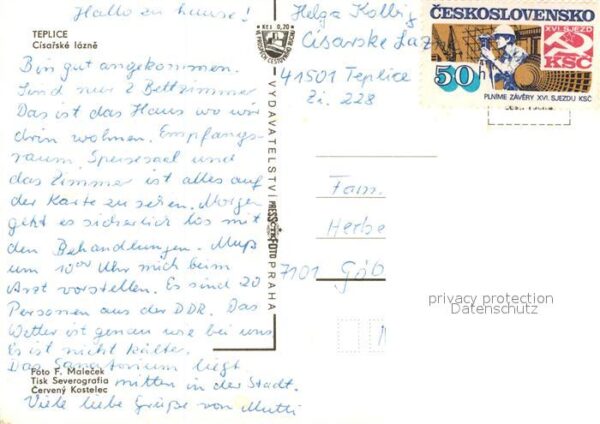 Hallo zu hause!
TEPLICE
Císařské lázně
Bin gut angekommen.
Sind nur 2 Bettzimmer
Das ist das Haus wo wir
drin wohnen. Empfangs-
raum, Speisesaal und
das Zimmer ist alles auf
der Karte zu sehen. Morgen
geht es sicherlich los mit
den Behandlungen. Muß
um 10⁰⁰ Uhr mich beim
Arzt vorstellen. Es sind 20
Personen aus der DDR. Das
Wetter ist genau wie bei uns
Es ist nicht kälter.
Das Sanatorium liegt
mitten in der Stadt.
Viele liebe Grüße von Mutti
Foto F. Maleček
Tisk Severografia
Červený Kostelec
Kčs 0,20
VYDAVATELSTVÍ PRESSFOTO PRAHA
Helga Kolbig
Císarske Lazne
41501 Teplice
Zi. 228
ČESKOSLOVENSKO
XVI. SJEZD
KSČ
50 h
PLNÍME ZÁVĚRY XVI. SJEZDU KSČ
Fam.
Herbe
7101 Göb
privacy protection
Datenschutz